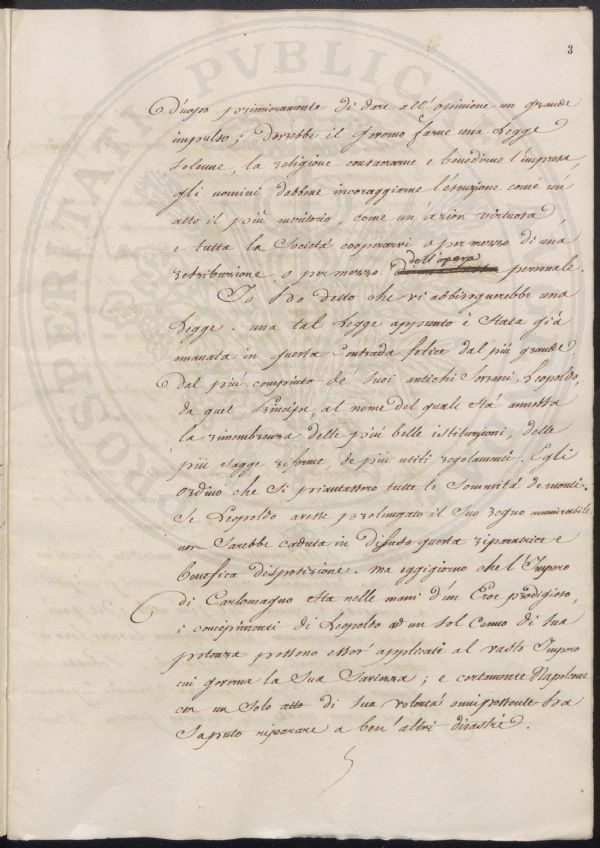 3
d'uopo primieramente di dare all'opinione un grande
impulso; dovrebbe il Governo farne una Legge
solenne, la religione consacrarne e benedirne l'impresa,
gli uomini dabbene incoraggiarne l'esecuzione come un
atto il più meritorio, come un'azion virtuosa,
e tutta la Società cooperarvi o per mezzo di una
retribuzione, o per mezzo dell'opera personale.
Io ho detto che vi abbisognerebbe una
Legge. una tal Legge appunto è stata già
emanata in questa Contrada felice dal più grande
dal più compiuto de' suoi antichi Sovrani, Leopoldo,
da quel Principe, al nome del quale stà annessa
la rimembranza delle più belle istituzioni, delle
più sagge riforme, de più utili regolamenti. Egli
ordinò che si piantassero tutte le Sommità de monti.
Se Leopoldo avesse prolungato il suo regno ammirabile
non sarebbe caduta in disuso questa riparatrice e
benefica disposizione. ma oggigiorno che l'Impero
di Carlomagno sta nelle mani d'un Eroe prodigioso,
i concepimenti di Leopoldo ad un sol Cenno di sua
potenza possono esser applicati al vasto Impero
cui governa la Sua Saviezza; e certamente Napoleone
con un solo atto di sua volontà onnipossente ha
saputo riparare a ben'altri disastri.
PROSPERITATI PVBLICAE